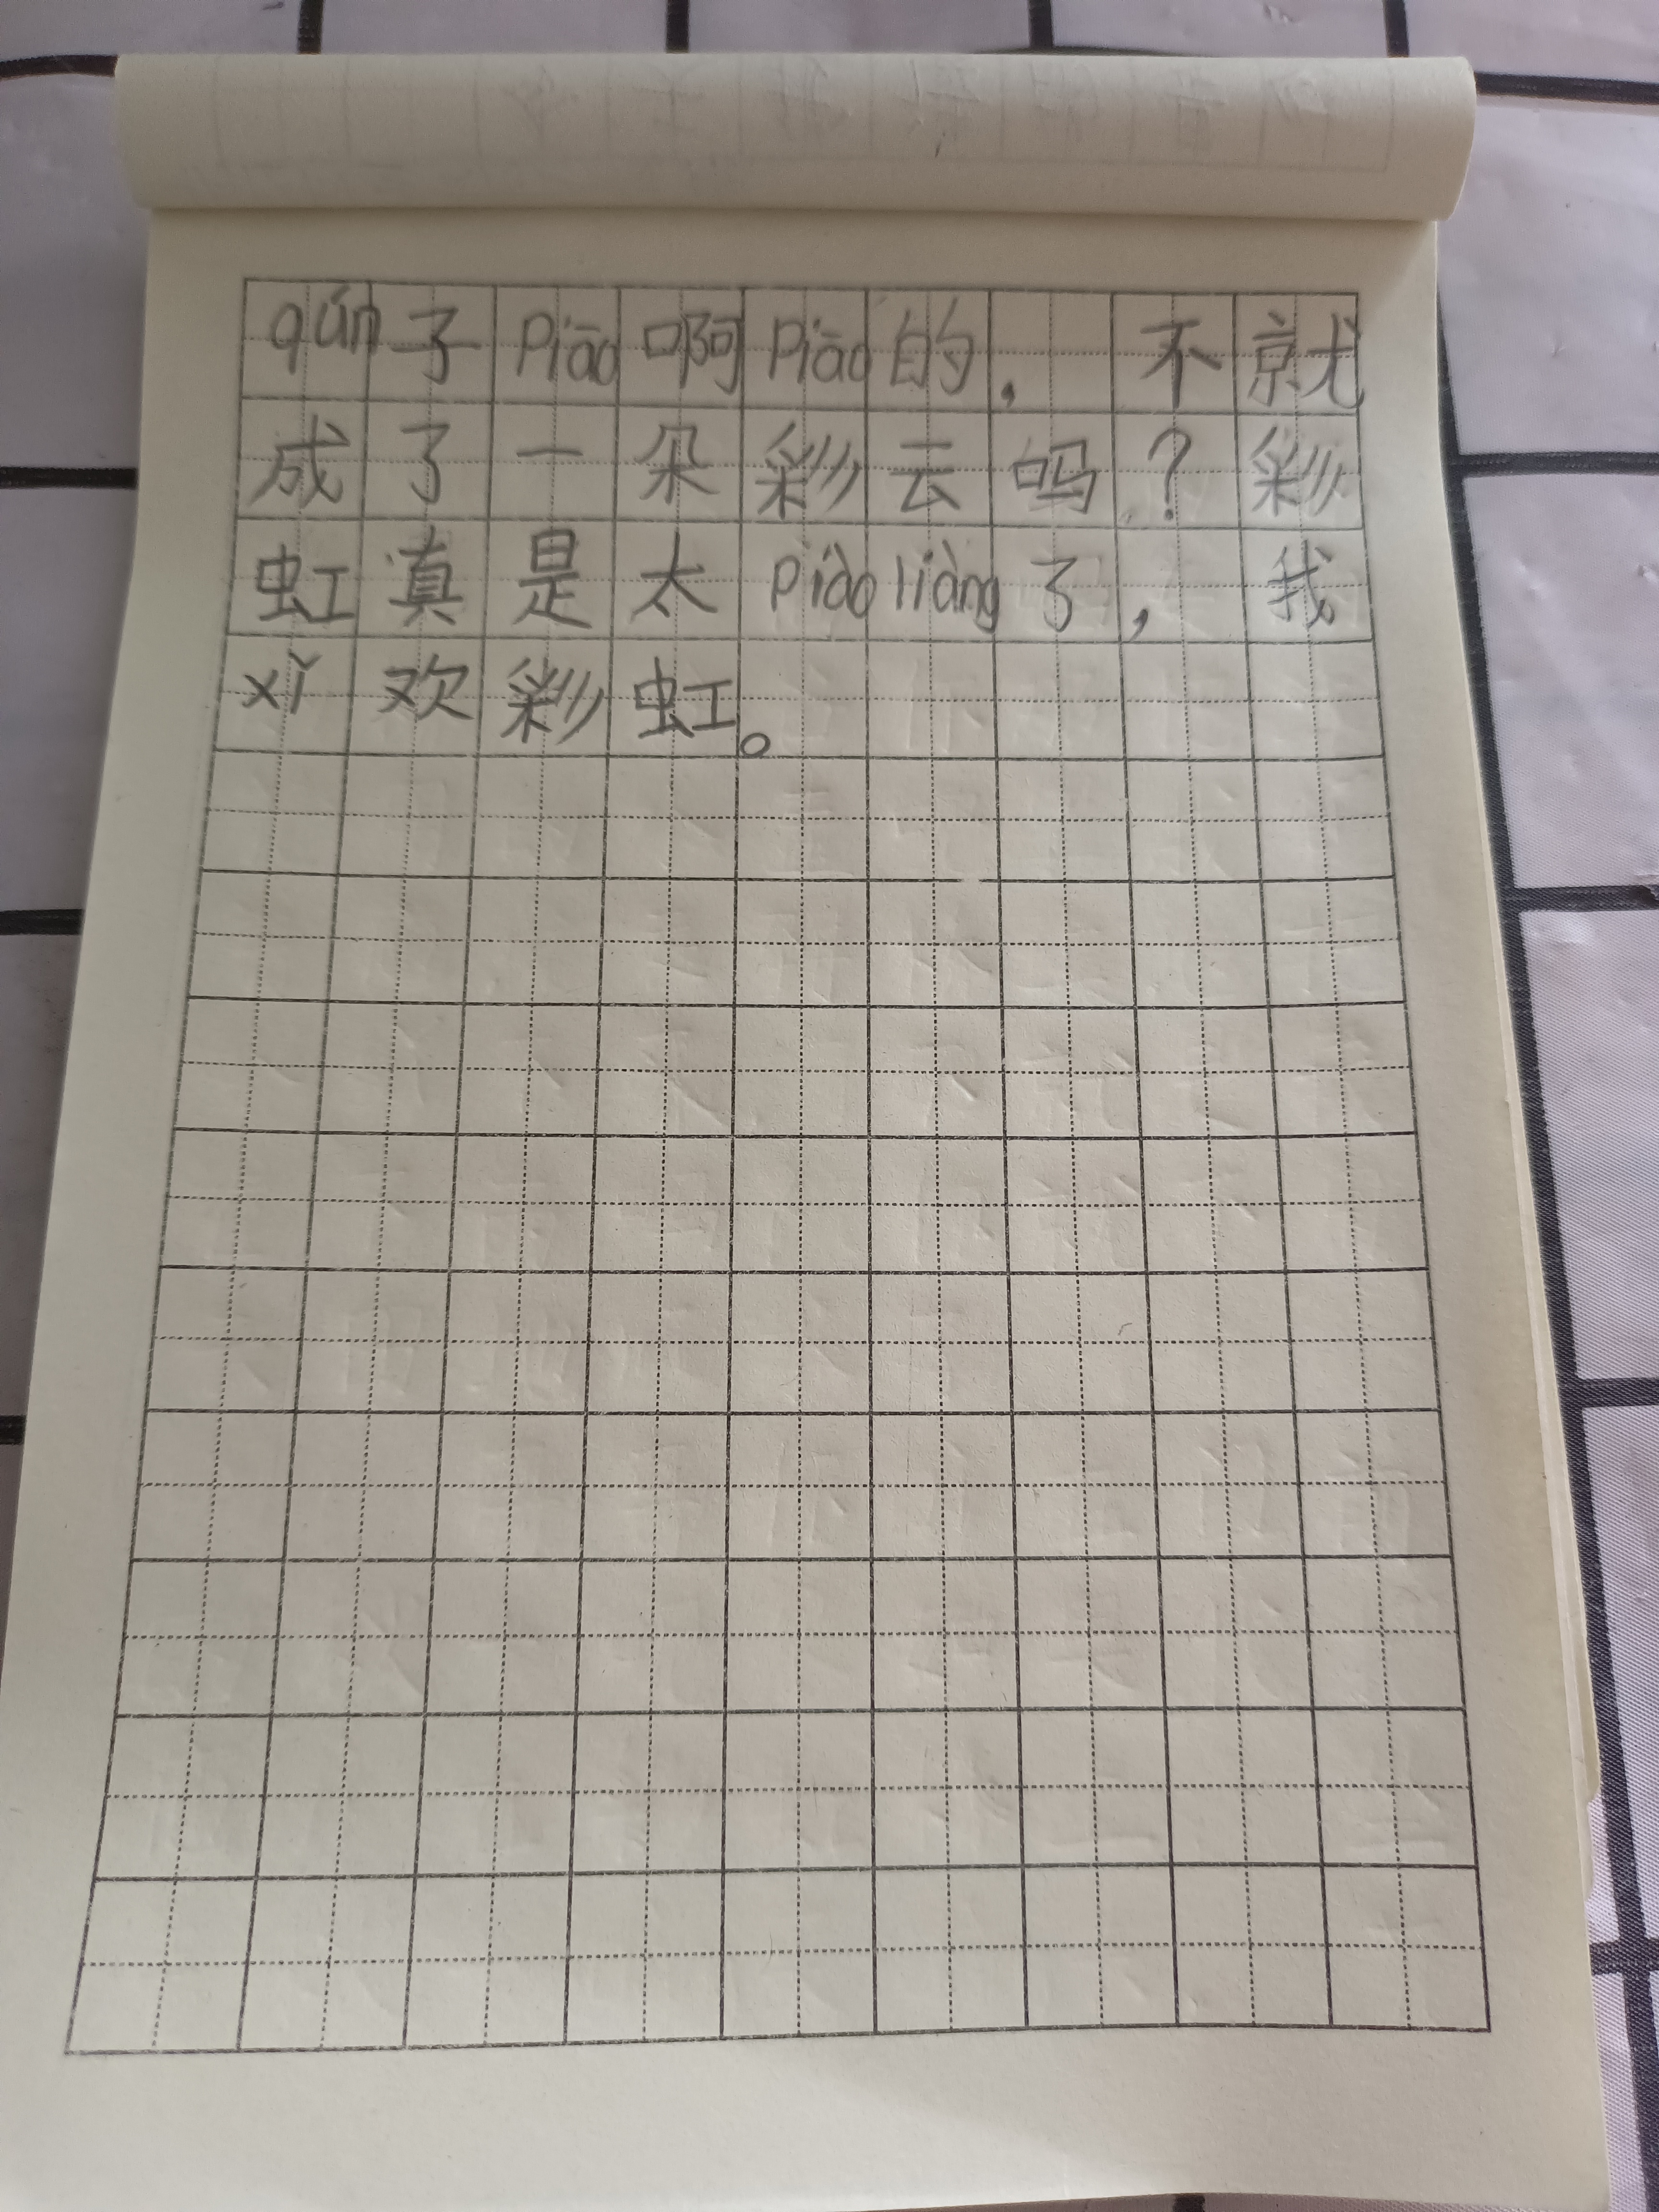 qún子piāo啊piāo的，不就
成了一朵彩云吗？彩
虹真是太piàoliàng了，我
xǐ欢彩虹。